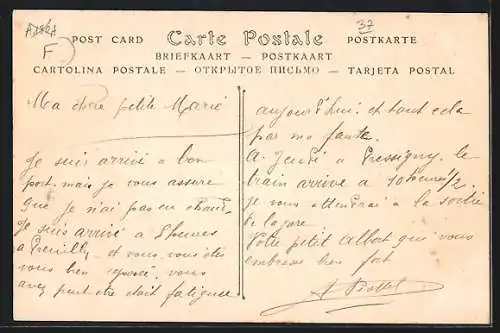 37
F
POST CARD Carte Postale POSTKARTE
BRIEFKAART — POSTKAART
CARTOLINA POSTALE — ОТКРЫТОЕ ПИСЬМО — TARJETA POSTAL
Ma chère petite Marie
Je suis arrivé à bon
port, mais je vous assure
que je n'ai pas eu chaud.
Je suis arrivé à heures
à Preuilly et vous, vous êtes
vous bien, vous
avez peut être était fatiguée
aujourd'hui et tout cela
par ma faute.
A Jeudi à Pressigny. le
train arrive à 10 heures 1/2
je vous attendrai à la sortie
de la gare.
Votre petit Albert qui vous
embrasse bien fort
A